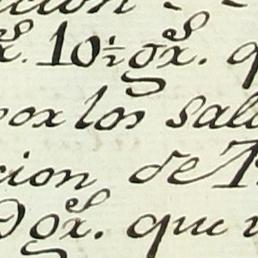 cion
10½ grs. q
por los sal
cion de
9 grs. que